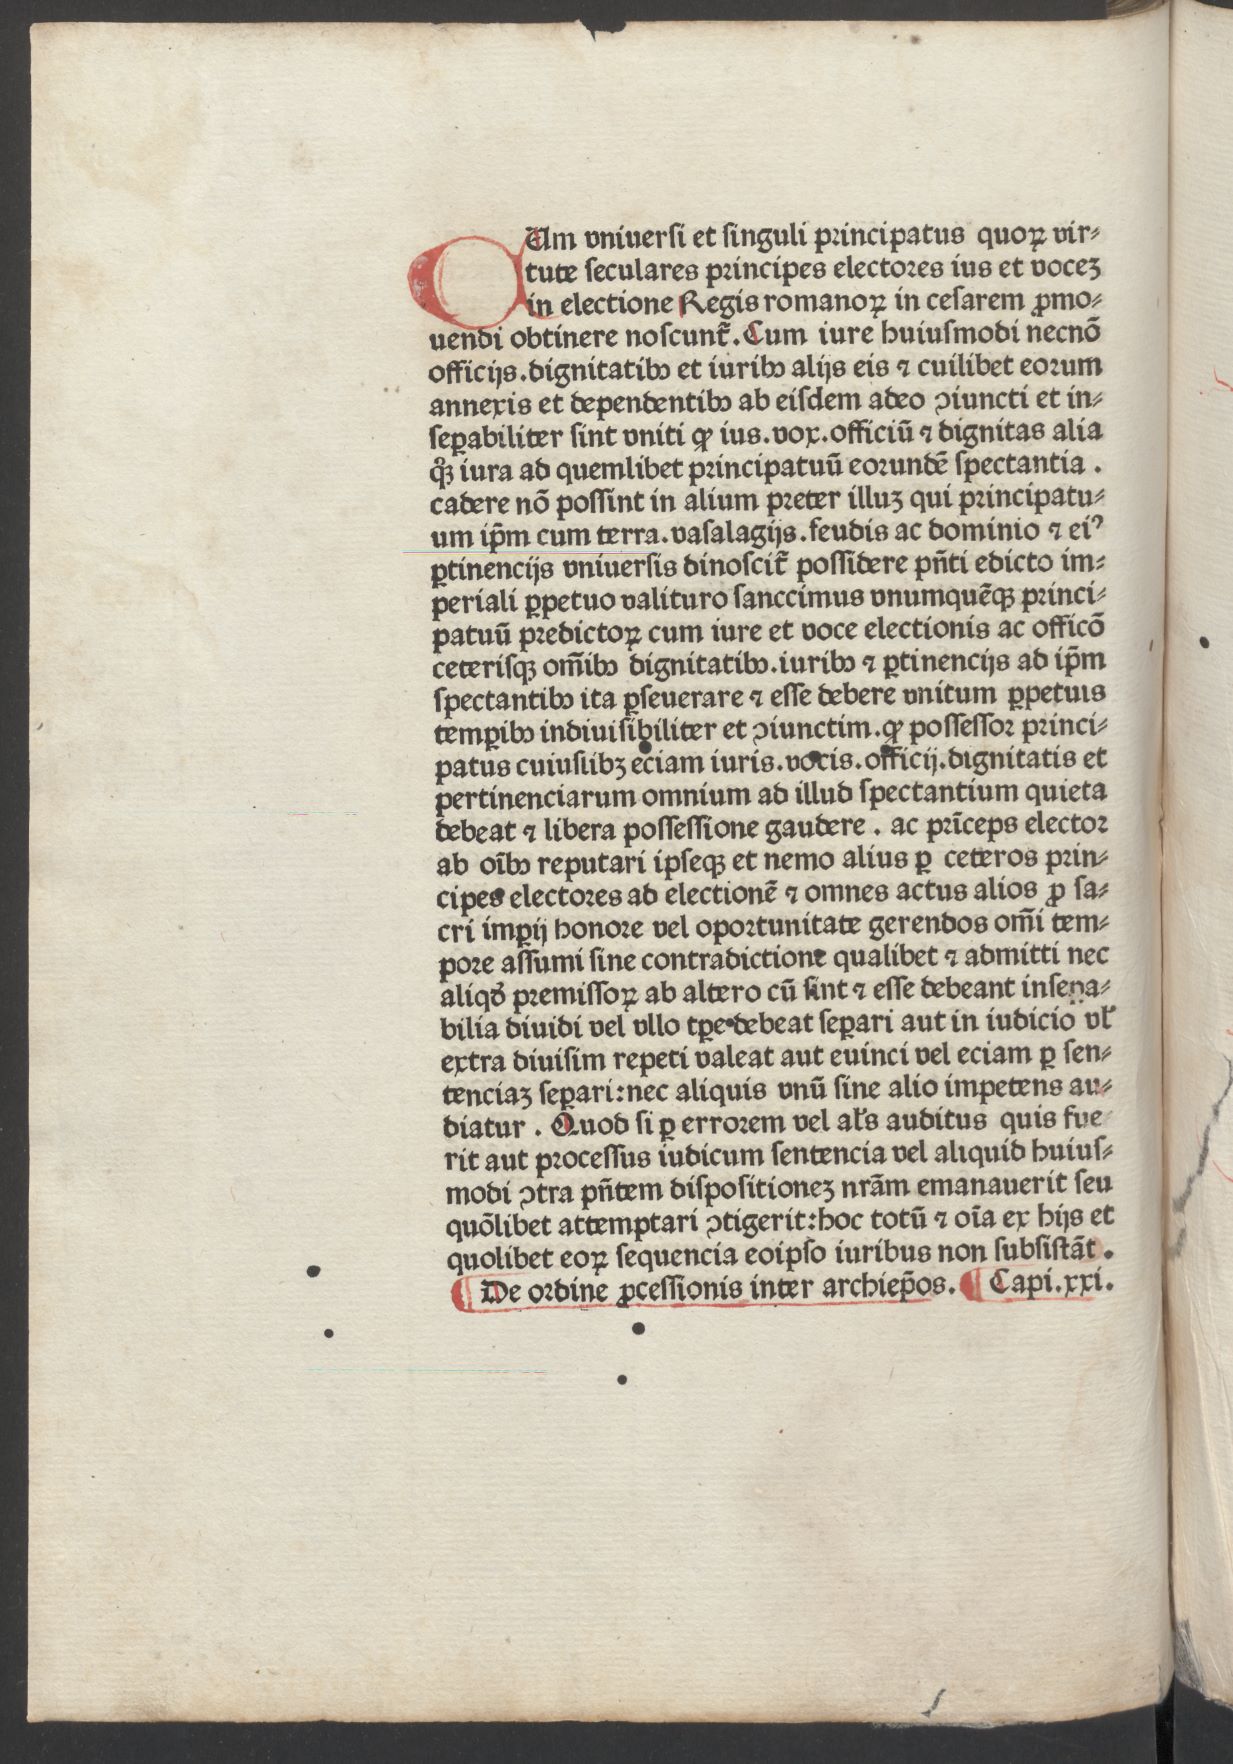 CUm vniuersi et singuli principatus quoꝝ vir⸗
tute seculares principes electores ius et vocez
in electione Regis romanoꝝ in cesarem ꝓmo⸗
uendi obtinere noscunt̃. Cum iure huiusmodi necnō
officijs. dignitatibꝯ et iuribꝯ alijs eis ⁊ cuilibet eorum
annexis et dependentibꝯ ab eisdem adeo ꝯiuncti et in⸗
seꝑabiliter sint vniti ꝙ ius. vox. officiū ⁊ dignitas alia
qͦꝫ iura ad quemlibet principatuū eorundē spectantia.
cadere nō possint in alium preter illuz qui principatu⸗
um ip̄m cum terra. vasalagijs. feudis ac dominio ⁊ eiꝰ
ꝑtinencijs vniuersis dinoscit̃ possidere pn̄ti edicto im⸗
periali ꝑpetuo valituro sanccimus vnumquēqꝫ princi⸗
patuū predictoꝝ cum iure et voce electionis ac officō
ceterisqꝫ om̄ibꝯ dignitatibꝯ. iuribꝯ ⁊ ꝑtinencijs ad ip̄m
spectantibꝯ ita ꝑseuerare ⁊ esse debere vnitum ꝑpetuis
temꝑibꝯ indiuisibiliter et ꝯiunctim. ꝙ possessor princi⸗
patus cuiuslibꝫ eciam iuris. vocis. officij. dignitatis et
pertinenciarum omnium ad illud spectantium quieta
debeat ⁊ libera possessione gaudere. ac prīceps elector
ab oībꝯ reputari ipseqꝫ et nemo alius ꝑ ceteros prin⸗
cipes electores ad electionē ⁊ omnes actus alios ꝓ sa⸗
cri imꝑij honore vel oportunitate gerendos om̄i tem⸗
pore assumi sine contradictione qualibet ⁊ admitti nec
aliqd̓ premissoꝝ ab altero cū sint ⁊ esse debeant insepa⸗
bilia diuidi vel vllo tꝑe debeat seꝑari aut in iudicio vl̓
extra diuisim repeti valeat aut euinci vel eciam ꝑ sen⸗
tenciaz seꝑari: nec aliquis vnū sine alio impetens au⸗
diatur. Quod si ꝑ errorem vel al̓s auditus quis fue
rit aut processus iudicum sentencia vel aliquid huius⸗
modi ꝯtra pn̄tem dispositionez nr̄am emanauerit seu
quōlibet attemptari ꝯtigerit: hoc totū ⁊ oīa ex hijs et
quolibet eoꝝ sequencia eoipso iuribus non subsistāt.
¶ De ordine ꝓcessionis inter archiep̄os. ¶ Capi. xxi.